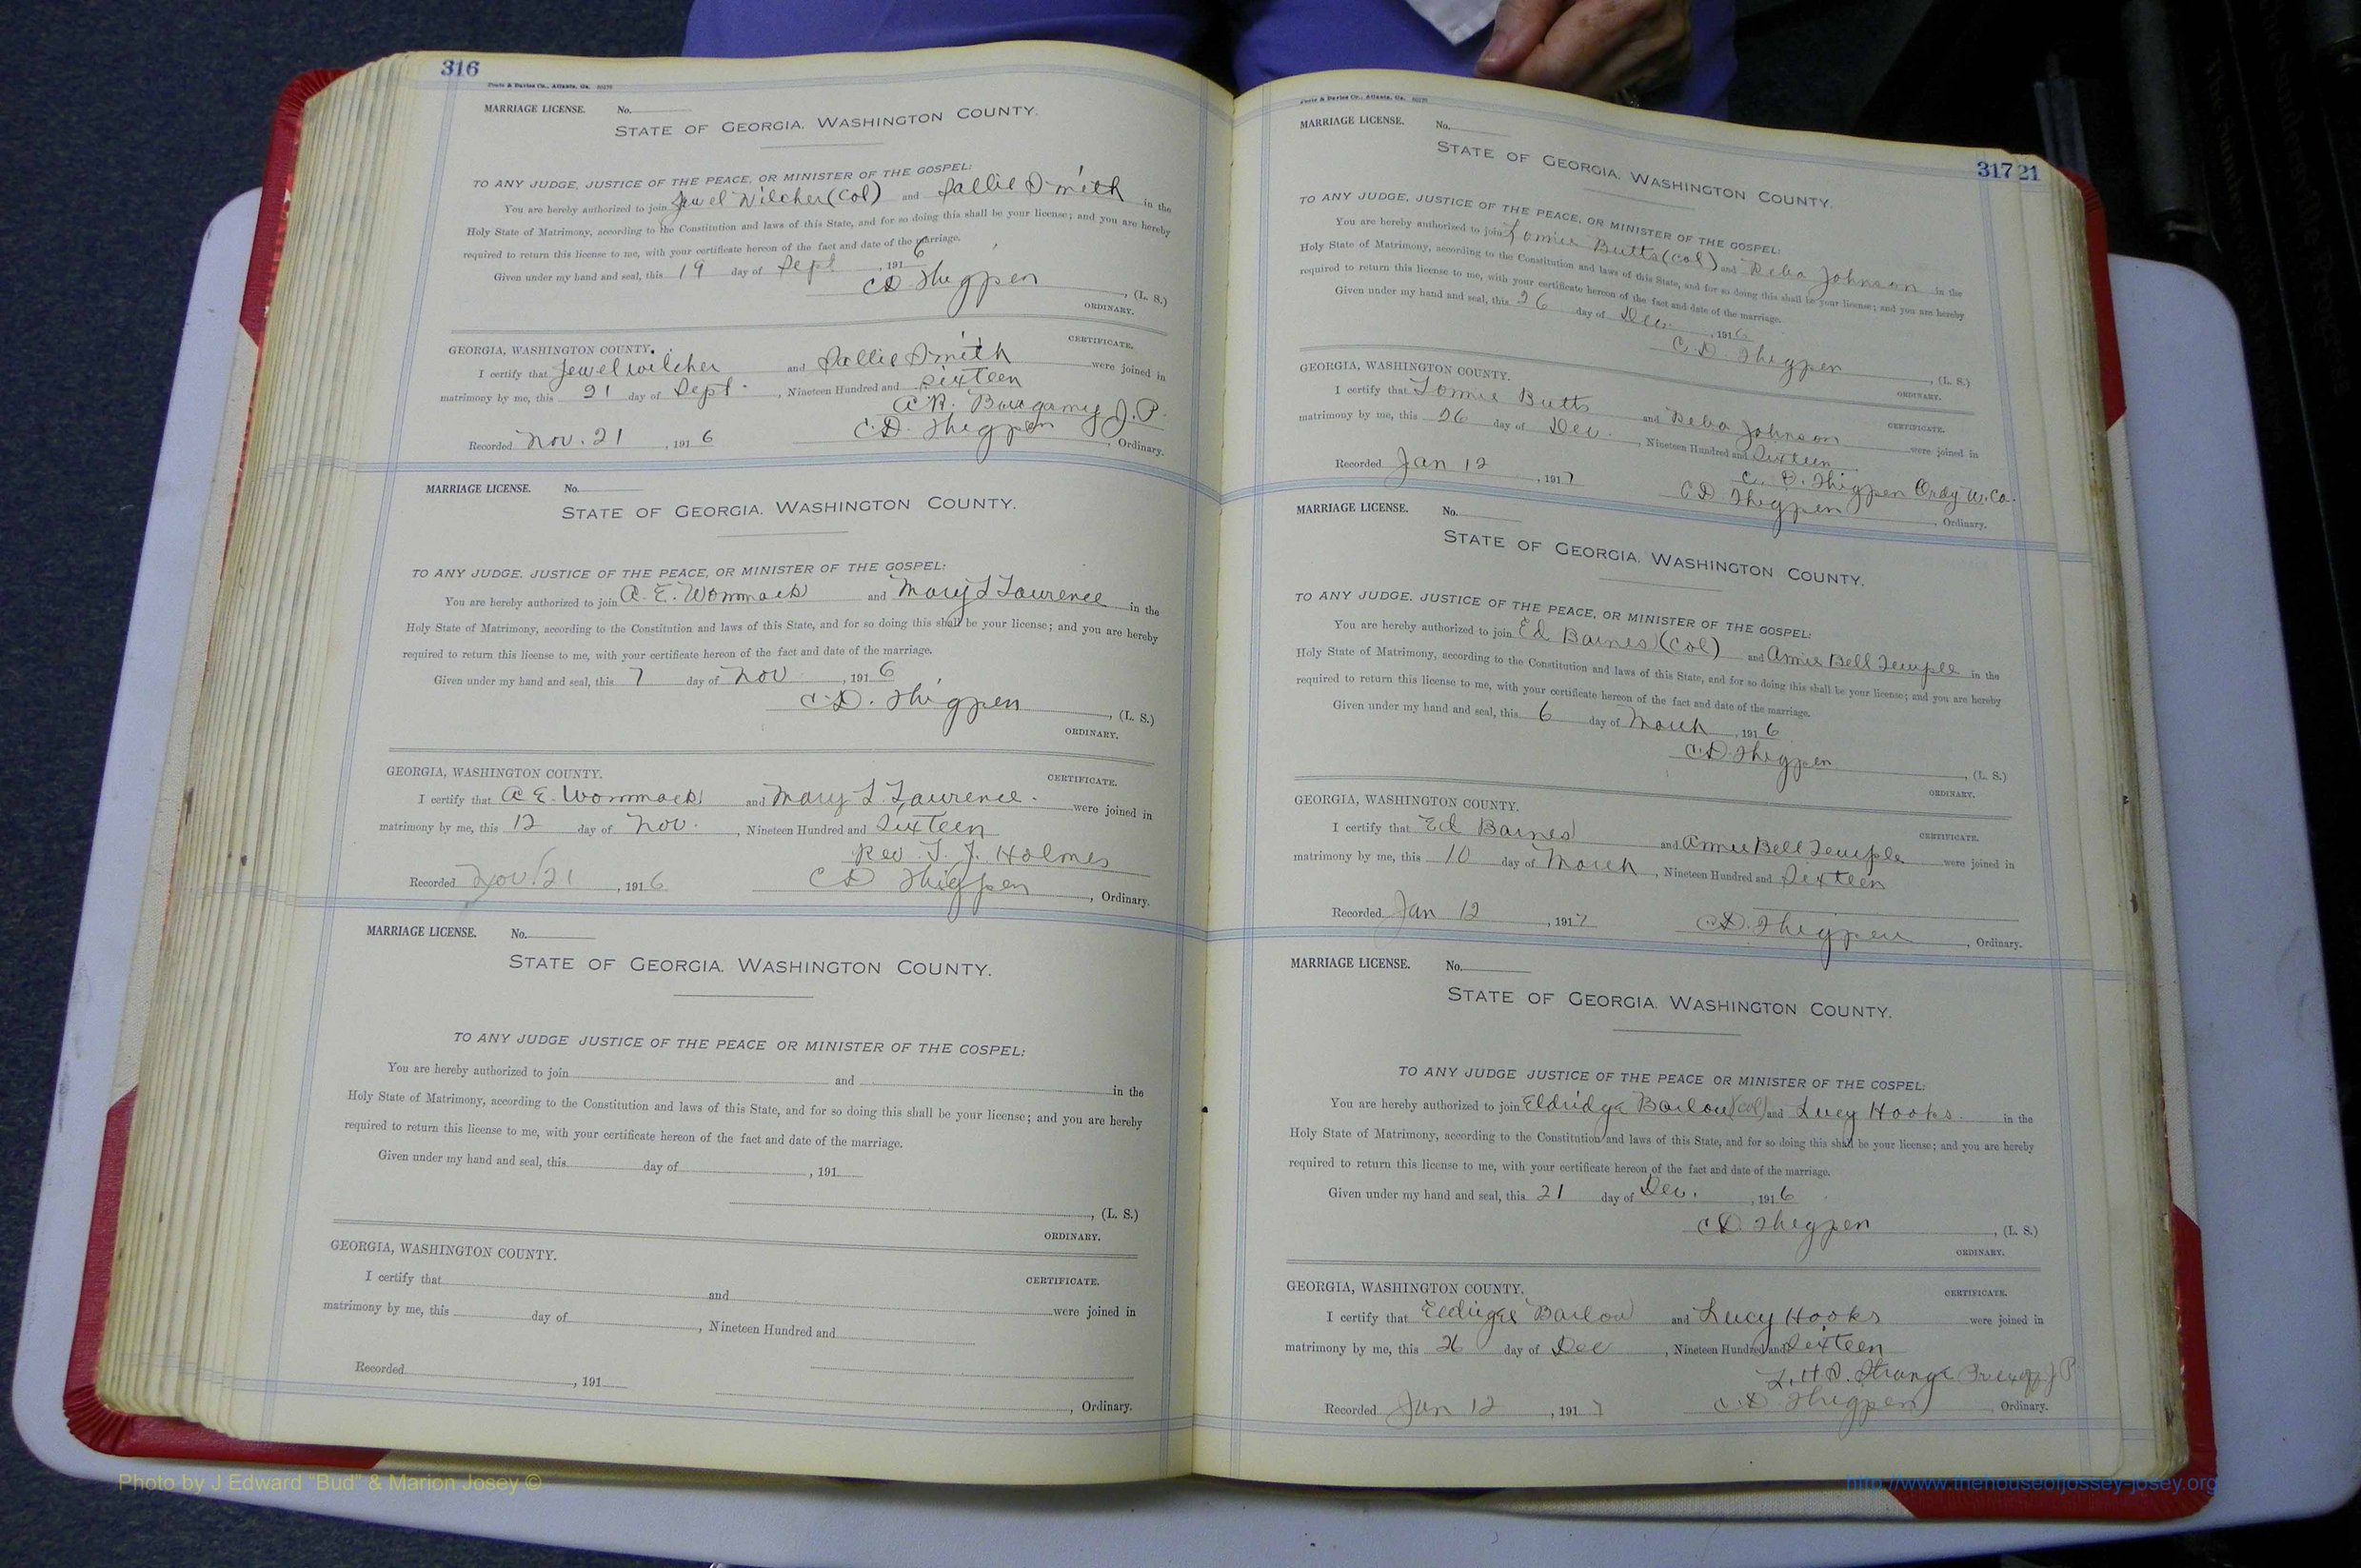 316
Foote & Davies Co., Atlanta, Ga.
MARRIAGE LICENSE. No.
STATE OF GEORGIA. WASHINGTON COUNTY.
TO ANY JUDGE, JUSTICE OF THE PEACE, OR MINISTER OF THE GOSPEL:
You are hereby authorized to join Jewel Wilcher (Col) and Sallie Smith in the
Holy State of Matrimony, according to the Constitution and laws of this State, and for so doing this shall be your license; and you are hereby
required to return this license to me, with your certificate hereon of the fact and date of the marriage.
Given under my hand and seal, this 19 day of Sept , 1916
C D Thigpen , (L. S.)
ORDINARY.
GEORGIA, WASHINGTON COUNTY. CERTIFICATE.
I certify that Jewel wilcher and Sallie Smith were joined in
matrimony by me, this 21 day of Sept. , Nineteen Hundred and sixteen
A. R. Burgamy J. P.
Recorded Nov. 21 , 1916 C. D. Thigpen , Ordinary.
MARRIAGE LICENSE. No.
STATE OF GEORGIA. WASHINGTON COUNTY.
TO ANY JUDGE, JUSTICE OF THE PEACE, OR MINISTER OF THE GOSPEL:
You are hereby authorized to join A. E. Wommack and Mary L Lawrence in the
Holy State of Matrimony, according to the Constitution and laws of this State, and for so doing this shall be your license; and you are hereby
required to return this license to me, with your certificate hereon of the fact and date of the marriage.
Given under my hand and seal, this 7 day of Nov , 1916
C. D. Thigpen , (L. S.)
ORDINARY.
GEORGIA, WASHINGTON COUNTY. CERTIFICATE.
I certify that A E. Wommack and Mary L. Lawrence. were joined in
matrimony by me, this 12 day of Nov. , Nineteen Hundred and Sixteen
Rev. T. J. Holmes
Recorded Nov. 21 , 1916 C D Thigpen , Ordinary.
MARRIAGE LICENSE. No.
STATE OF GEORGIA. WASHINGTON COUNTY.
TO ANY JUDGE JUSTICE OF THE PEACE OR MINISTER OF THE GOSPEL:
You are hereby authorized to join and in the
Holy State of Matrimony, according to the Constitution and laws of this State, and for so doing this shall be your license; and you are hereby
required to return this license to me, with your certificate hereon of the fact and date of the marriage.
Given under my hand and seal, this day of , 191
, (L. S.)
ORDINARY.
GEORGIA, WASHINGTON COUNTY.
CERTIFICATE.
I certify that and were joined in
matrimony by me, this day of , Nineteen Hundred and
Recorded , 191 , Ordinary.
Foote & Davies Co., Atlanta, Ga.
MARRIAGE LICENSE. No.
317 21
STATE OF GEORGIA. WASHINGTON COUNTY.
TO ANY JUDGE, JUSTICE OF THE PEACE, OR MINISTER OF THE GOSPEL:
You are hereby authorized to join Tomie Butts (Col) and Reba Johnson in the
Holy State of Matrimony, according to the Constitution and laws of this State, and for so doing this shall be your license; and you are hereby
required to return this license to me, with your certificate hereon of the fact and date of the marriage.
Given under my hand and seal, this 26 day of Dec. , 1916
C. D. Thigpen , (L. S.)
ORDINARY.
GEORGIA, WASHINGTON COUNTY.
CERTIFICATE.
I certify that Tomie Butts and Reba Johnson were joined in
matrimony by me, this 26 day of Dec. , Nineteen Hundred and Sixteen
C. D. Thigpen Ordy W. Co.
Recorded Jan 12 , 1917 C D Thigpen , Ordinary.
MARRIAGE LICENSE. No.
STATE OF GEORGIA. WASHINGTON COUNTY.
TO ANY JUDGE, JUSTICE OF THE PEACE, OR MINISTER OF THE GOSPEL:
You are hereby authorized to join Ed Baines (Col) and Annie Bell Temple in the
Holy State of Matrimony, according to the Constitution and laws of this State, and for so doing this shall be your license; and you are hereby
required to return this license to me, with your certificate hereon of the fact and date of the marriage.
Given under my hand and seal, this 6 day of March , 1916
C. D. Thigpen , (L. S.)
ORDINARY.
GEORGIA, WASHINGTON COUNTY.
CERTIFICATE.
I certify that Ed Baines and Annie Bell Temple were joined in
matrimony by me, this 10 day of March , Nineteen Hundred and Sixteen
Recorded Jan 12 , 1917 C. D. Thigpen , Ordinary.
MARRIAGE LICENSE. No.
STATE OF GEORGIA. WASHINGTON COUNTY.
TO ANY JUDGE JUSTICE OF THE PEACE OR MINISTER OF THE GOSPEL:
You are hereby authorized to join Eldridge Barlow (col) and Lucy Hooks. in the
Holy State of Matrimony, according to the Constitution and laws of this State, and for so doing this shall be your license; and you are hereby
required to return this license to me, with your certificate hereon of the fact and date of the marriage.
Given under my hand and seal, this 21 day of Dec. , 1916
C D. Thigpen , (L. S.)
ORDINARY.
GEORGIA, WASHINGTON COUNTY.
CERTIFICATE.
I certify that Barlow and Lucy Hooks were joined in
matrimony by me, this 26 day of Dec , Nineteen Hundred and Sixteen
Strange J P
Recorded Jan 12 , 1917 C. D. Thigpen Ordinary.
Photo by J Edward "Bud" & Marion Josey ©
http://www.thehouseofjossey-josey.org